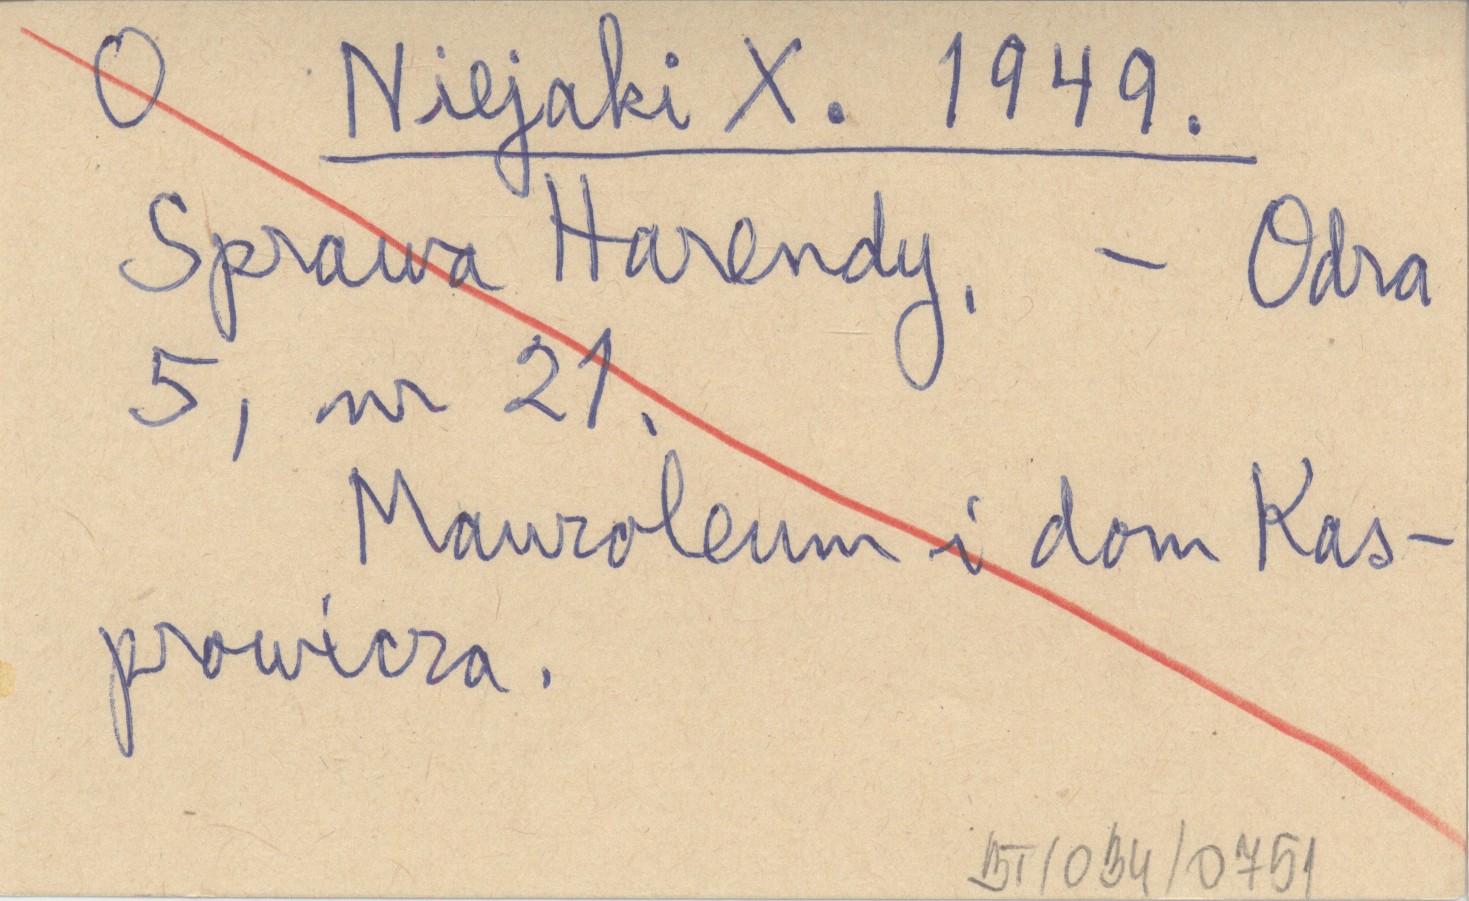 O Niejaki X. 1949.
Sprawa Harendy, - Odra
5, nr 21.
Mauzoleum i dom Kas-
prowicza.
BT/034/0751